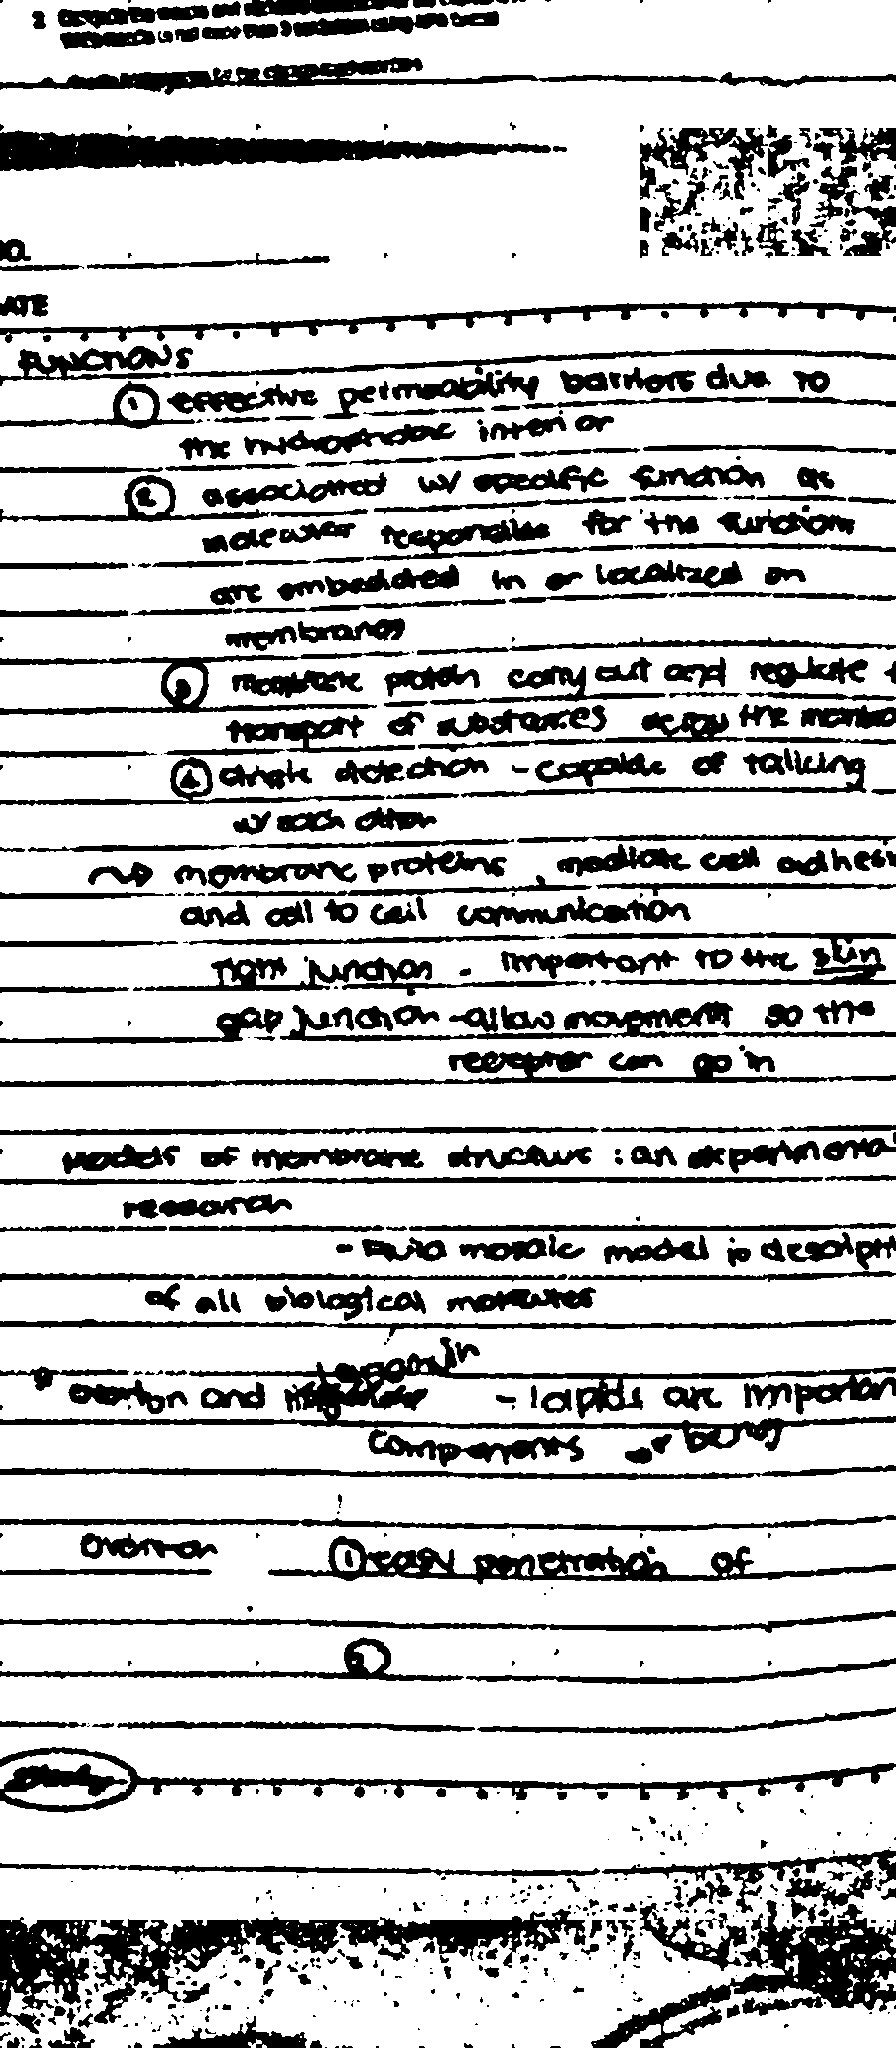 NO.
ATE
FUNCTIONS
① effective permeability barriers due to
the hydrophobic interior
② associated w/ specific function as
molecules responsible for the functions
are embedded in or localized on
membranes
③ membrane protein carry out and regulate
transport of substances across the membra
④ single detection - capable of talking
w/ each other
membrane proteins, mediate cell adhesi
and cell to cell communication
Tight junction - important to the skin
gap junction - allow movement so the
receptor can go in
Models of membrane structure : an experimental
research
- Fluid mosaic model is descripti
of all biological
overton and langmuin - lapids are importan
components
overton ① easy penetration of
②